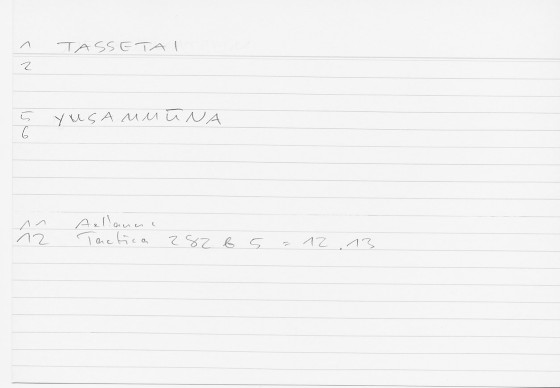 1 TASSETAI
2
5 YUGAMMŪNA
6
11
12 Tactica 282 B 5 = 12.13